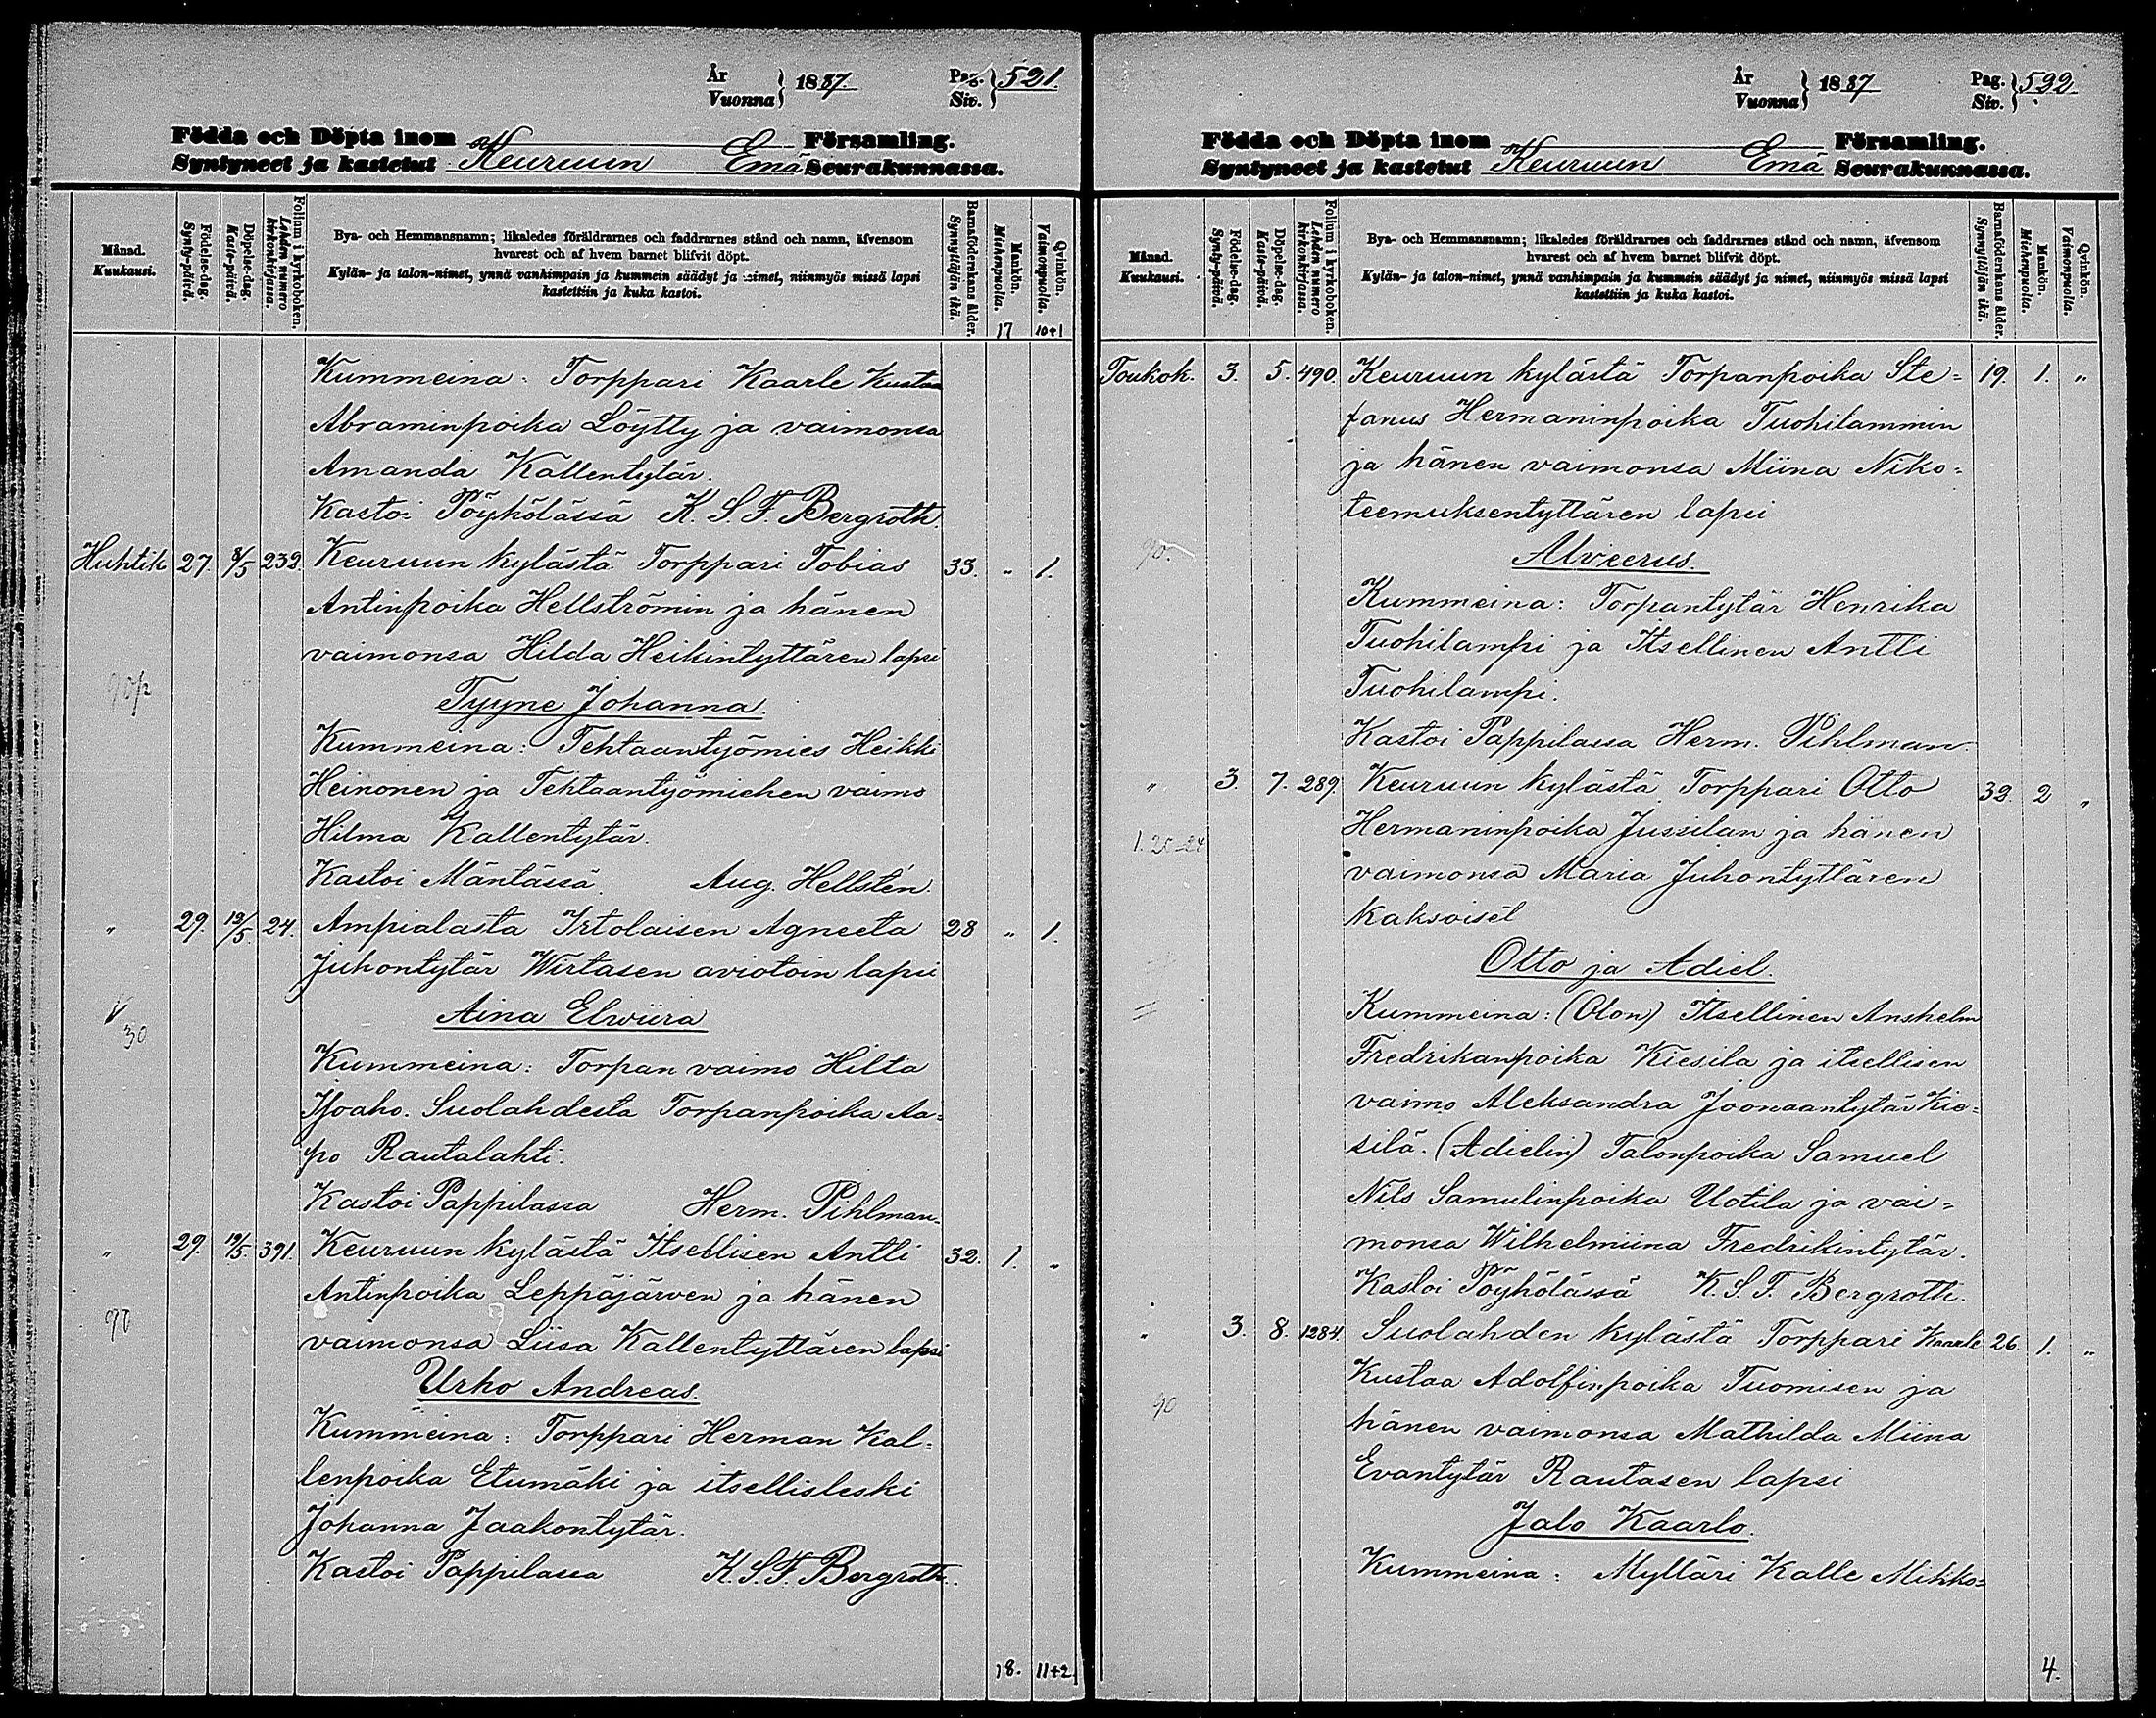 År
Vuonna } 1887. Pag.
Siv. } 521.
Födda och Döpta inom Församling.
Syntyneet ja kastetut Keuruun Emä Seurakunnassa.
Månad.
Kuukausi.
Födelse-dag.
Synty-päivä.
Döpelse-dag.
Kaste-päivä.
Folium i kyrkoboken.
Lehden numero
kirkonkirjassa.
Bya- och Hemmansnamn; likaledes föräldrarnes och faddrarnes stånd och namn, äfvensom
hvarest och af hvem barnet blifvit döpt.
Kylän- ja talon-nimet, ynnä vanhimpain ja kummein säädyt ja nimet, niinmyös missä lapsi
kastettiin ja kuka kastoi.
Barnaföderskans ålder.
Synnyttäjän ikä.
Mankön.
Miehenpuolia.
Qvinkön.
Vaimonpuolia.
17 10+1
Kummeina: Torppari Kaarle Kustaa
Abraminpoika Löytty ja vaimonsa
Amanda Kallentytär.
Kastoi Pöyhölässä K. S. F. Bergroth.
Huhtik 27. 8/5 232. Keuruun kylästä Torppari Tobias 33. " 1.
Antinpoika Hellströmin ja hänen
vaimonsa Hilda Heikintyttären lapsi
Tyyne Johanna.
Kummeina: Tehtaantyömies Heikki
Heinonen ja Tehtaantyömiehen vaimo
Hilma Kallentytär.
Kastoi Mäntässä. Aug. Hellstén.
" 29. 12/5. 24. Ampialasta Irtolaisen Agneeta 28 " 1.
Juhontytär Wirtasen aviotoin lapsi
Aina Elwiira
30
Kummeina: Torpan vaimo Hilta
Isoaho. Suolahdesta Torpanpoika Aa-
po Rautalahti.
Kastoi Pappilassa Herm. Pihlman.
" 29. 19/5. 391. Keuruun kylästä Itsellisen Antti 32. 1. "
Antinpoika Leppäjärven ja hänen
90
vaimonsa Liisa Kallentyttären lapsi
Urho Andreas.
Kummeina: Torppari Herman Kal-
lenpoika Etumäki ja itsellisleski
Johanna Jaakontytär.
Kastoi Pappilassa K. S. F. Bergroth.
18. 11+2.
År
Vuonna } 1887 Pag.
Siv. } 522.
Födda och Döpta inom Församling.
Syntyneet ja kastetut Keuruun Emä Seurakunnassa.
Månad.
Kuukausi.
Födelse-dag.
Synty-päivä.
Döpelse-dag.
Kaste-päivä.
Folium i kyrkoboken.
Lehden numero
kirkonkirjassa.
Bya- och Hemmansnamn; likaledes föräldrarnes och faddrarnes stånd och namn, äfvensom
hvarest och af hvem barnet blifvit döpt.
Kylän- ja talon-nimet, ynnä vanhimpain ja kummein säädyt ja nimet, niinmyös missä lapsi
kastettiin ja kuka kastoi.
Barnaföderskans ålder.
Synnyttäjän ikä.
Mankön.
Miehenpuolia.
Qvinkön.
Vaimonpuolia.
Toukok. 3. 5. 490. Keuruun kylästä Torpanpoika Ste- 19. 1. "
fanus Hermaninpoika Tuohilammin
ja hänen vaimonsa Miina Niko-
teemuksentyttären lapsi
90.
Alveerus.
Kummeina: Torpantytär Henrika
Tuohilampi ja Itsellinen Antti
Tuohilampi.
Kastoi Pappilassa Herm. Pihlman.
" 3. 7. 289. Keuruun kylästä Torppari Otto 32. 2 "
Hermaninpoika Jussilan ja hänen
vaimonsa Maria Juhontyttären
kaksoiset
Otto ja Adiel.
Kummeina: (Oton) Itsellinen Anshelm
Fredrikanpoika Kiesila ja itsellisen
vaimo Aleksandra Joonaantytär Kie-
silä. (Adielin) Talonpoika Samuel
Nils Samulinpoika Uotila ja vai-
monsa Wilhelmiina Fredrikintytär.
Kastoi Pöyhölässä K. S. F. Bergroth.
" 3. 8. 1284. Suolahden kylästä Torppari Kaarle 26. 1. "
Kustaa Adolfinpoika Tuomisen ja
90
hänen vaimonsa Mathilda Miina
Evantytär Rautasen lapsi
Jalo Kaarlo.
Kummeina: Mylläri Kalle Mikko-
4.